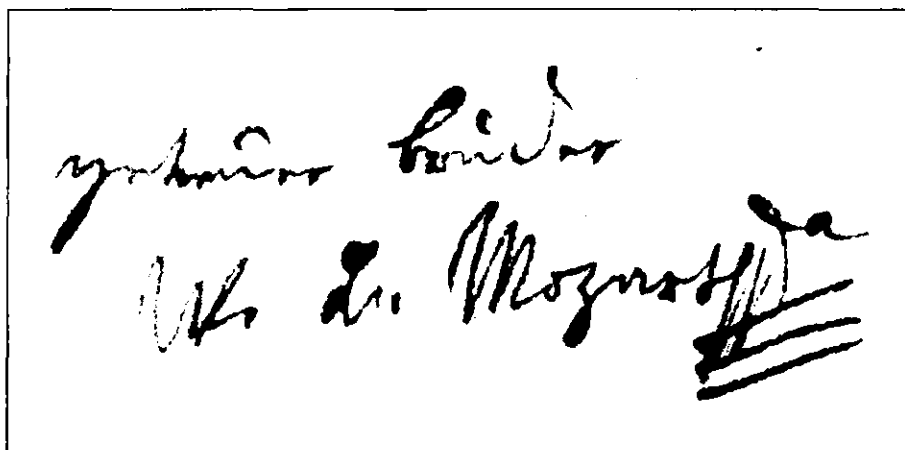 getreuer bruder
W. A. Mozart